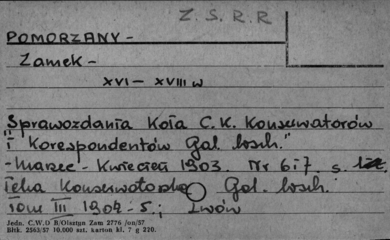 Z. S. R. R
POMORZANY -
Zamek -
XVI - XVIII w
Sprawozdania Koła C. K. Konserwatorów
"i Korespondentów Gal. wsch."
- Marzec - Kwiecień 1903. Nr 6 i 7 s.
Teka Konserwatorska Gal. wsch.
Tom III 1902 - 5.; Lwów
Jedn. C.W.D B/Olsztyn Zam 2776 /on/57
Bitk. 2563/57 10.000 szt. karton kl. 7 g 220.